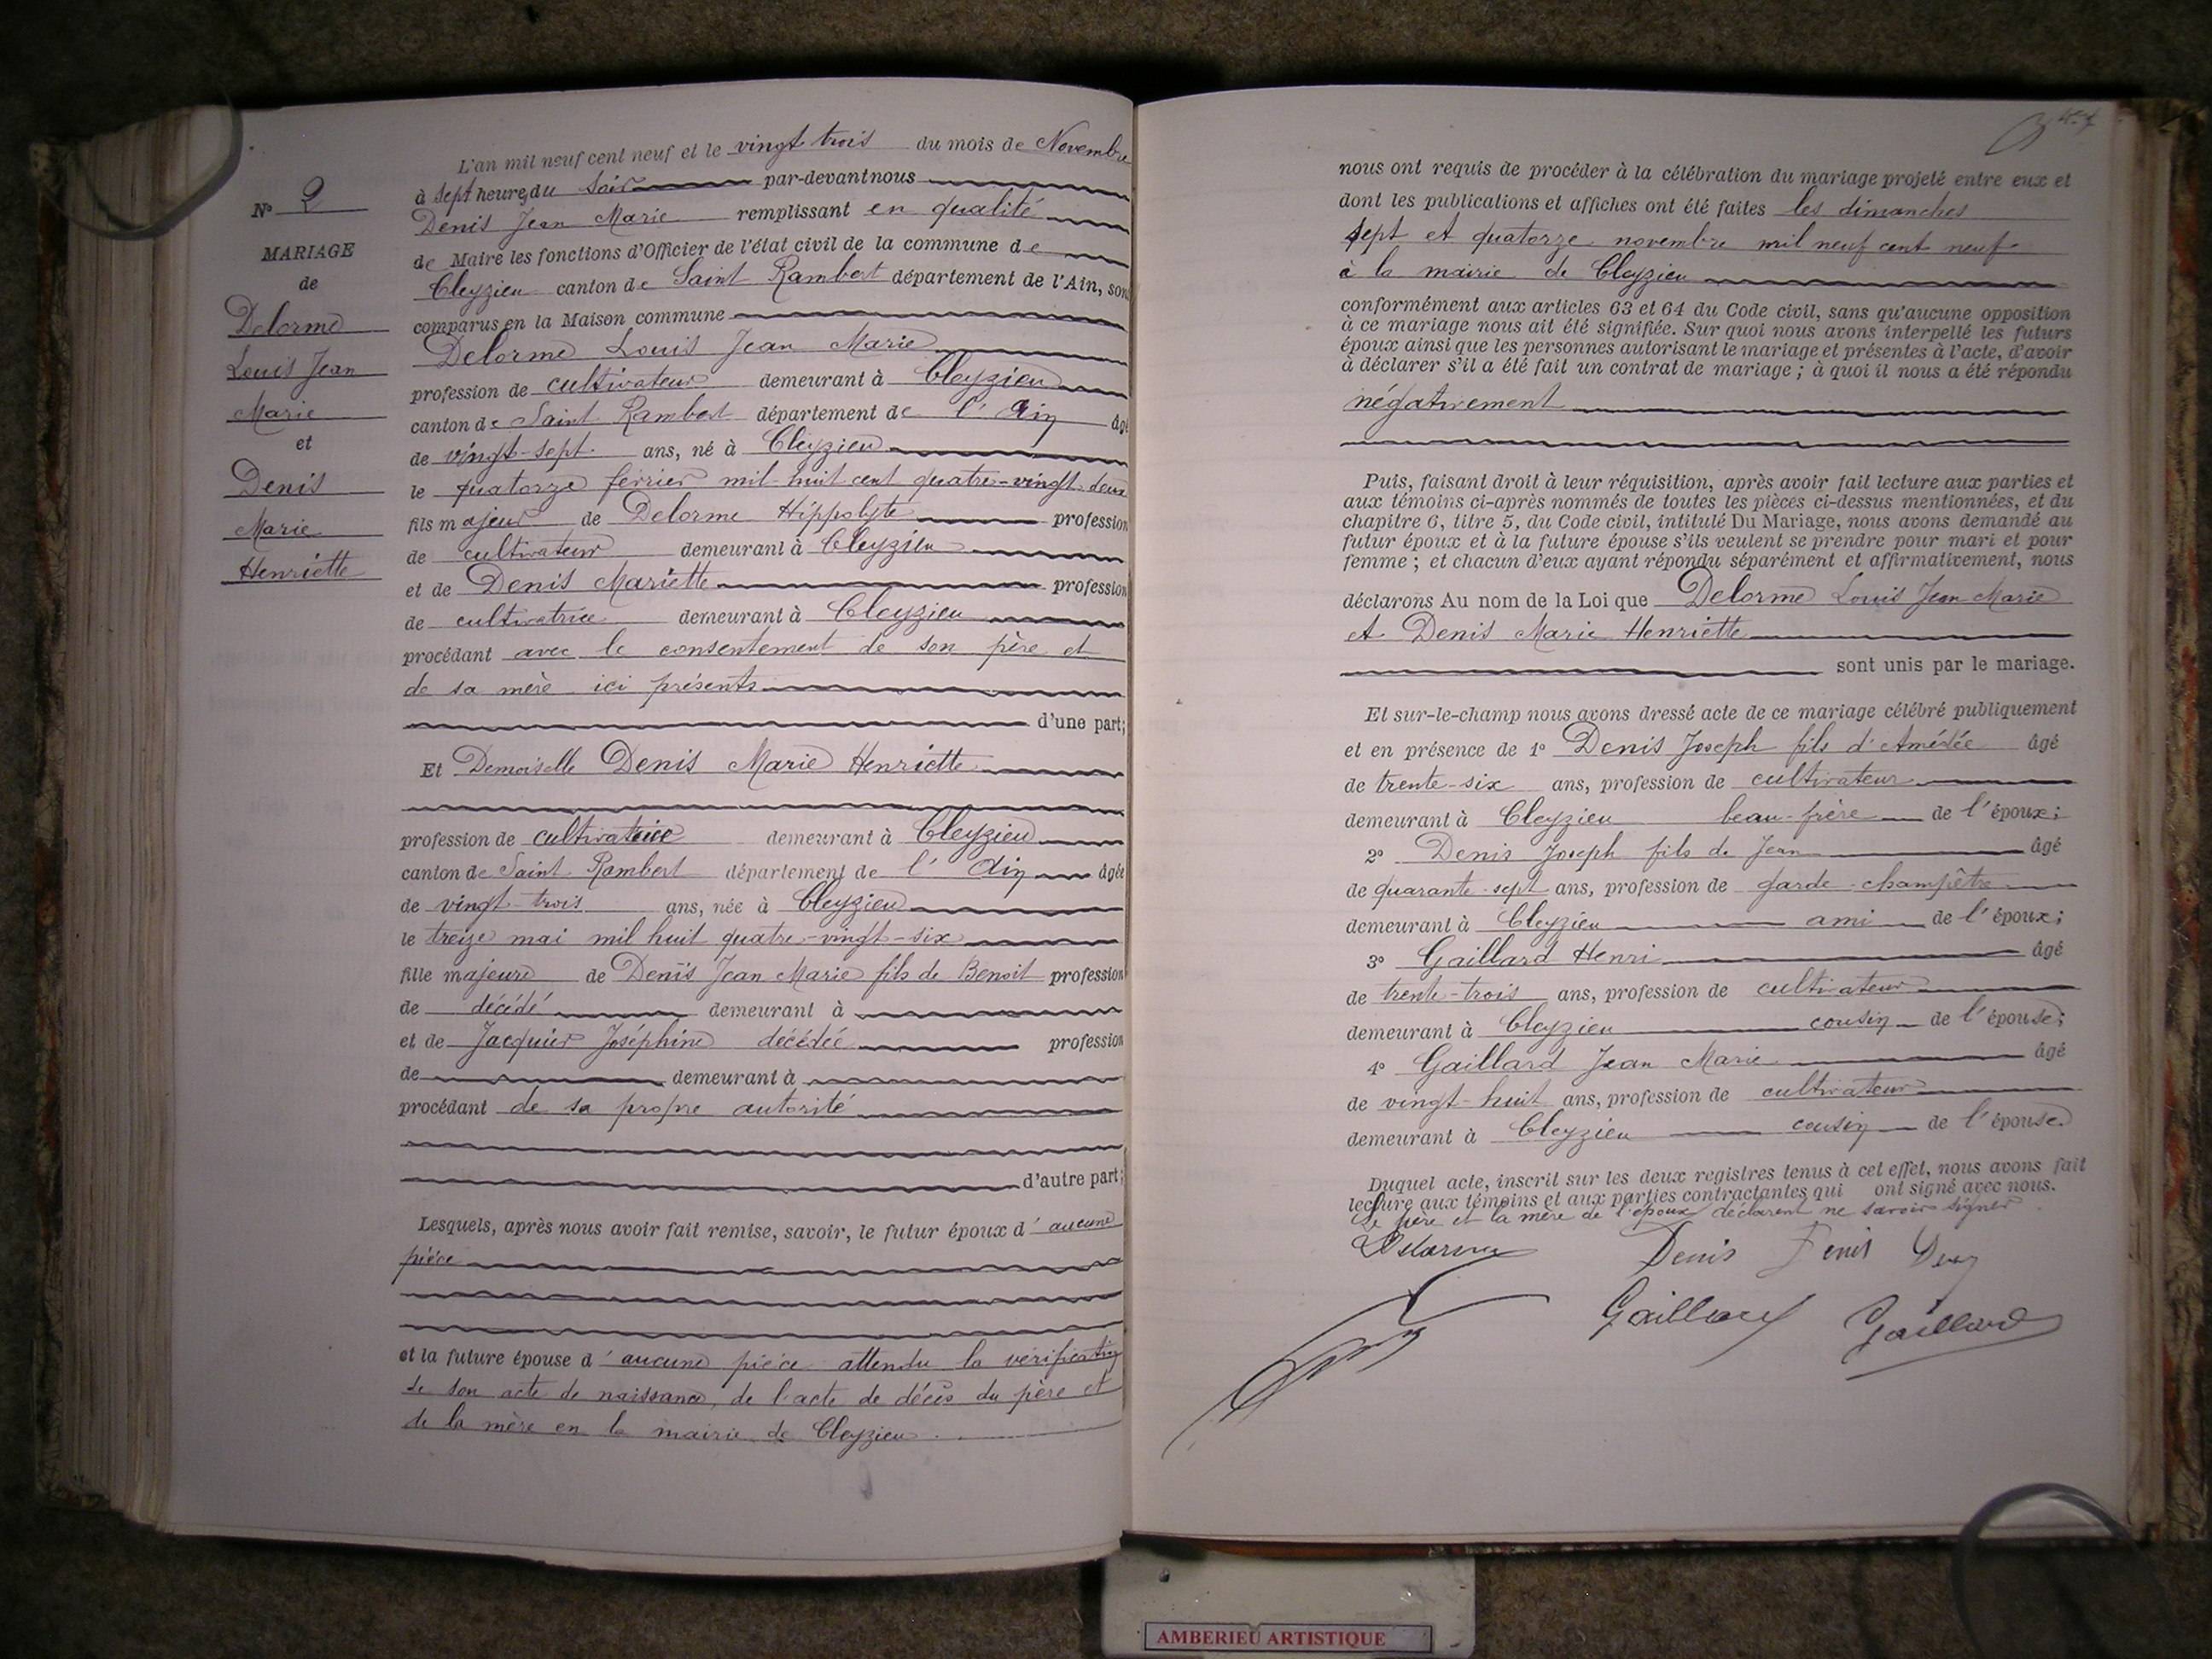 N° 2
MARIAGE
de
Delorme
Louis Jean
Marie
et
Denis
Marie
Henriette
L'an mil neuf cent neuf et le vingt trois du mois de Novembre
à sept heures du soir par-devant nous
Denis Jean Marie remplissant en qualité
de Maire les fonctions d'Officier de l'état civil de la commune de
Cleyzieu canton de Saint Rambert département de l'Ain, son
comparus en la Maison commune
Delorme Louis Jean Marie
profession de cultivateur demeurant à Cleyzieu
canton de Saint Rambert département de l'Ain âgé
de vingt-sept ans, né à Cleyzieu
le quatorze février mil huit cent quatre-vingt-deux
fils majeur de Delorme Hippolyte profession
de cultivateur demeurant à Cleyzieu
et de Denis Mariette profession
de cultivatrice demeurant à Cleyzieu
procédant avec le consentement de son père et
de sa mère ici présents
d'une part;
Et Demoiselle Denis Marie Henriette
profession de cultivatrice demeurant à Cleyzieu
canton de Saint Rambert département de l'Ain âgée
de vingt-trois ans, née à Cleyzieu
le treize mai mil huit quatre-vingt-six
fille majeure de Denis Jean Marie fils de Benoit profession
de décédé demeurant à
et de Jacquier Joséphine décédée profession
de demeurant à
procédant de sa propre autorité
d'autre part;
Lesquels, après nous avoir fait remise, savoir, le futur époux d'aucune
pièce
et la future épouse d'aucune pièce attendu la vérification
de son acte de naissance, de l'acte de décès du père et
de la mère en la mairie de Cleyzieu.
nous ont requis de procéder à la célébration du mariage projeté entre eux et
dont les publications et affiches ont été faites les dimanches
sept et quatorze novembre mil neuf cent neuf
à la mairie de Cleyzieu
conformément aux articles 63 et 64 du Code civil, sans qu'aucune opposition
à ce mariage nous ait été signifiée. Sur quoi nous avons interpellé les futurs
époux ainsi que les personnes autorisant le mariage et présentes à l'acte, d'avoir
à déclarer s'il a été fait un contrat de mariage ; à quoi il nous a été répondu
négativement
Puis, faisant droit à leur réquisition, après avoir fait lecture aux parties et
aux témoins ci-après nommés de toutes les pièces ci-dessus mentionnées, et du
chapitre 6, titre 5, du Code civil, intitulé Du Mariage, nous avons demandé au
futur époux et à la future épouse s'ils veulent se prendre pour mari et pour
femme ; et chacun d'eux ayant répondu séparément et affirmativement, nous
déclarons Au nom de la Loi que Delorme Louis Jean Marie
et Denis Marie Henriette
sont unis par le mariage.
Et sur-le-champ nous avons dressé acte de ce mariage célébré publiquement
et en présence de 1° Denis Joseph fils d'Amédée âgé
de trente-six ans, profession de cultivateur
demeurant à Cleyzieu beau-frère de l'époux;
2° Denis Joseph fils de Jean âgé
de quarante-sept ans, profession de garde-champêtre
demeurant à Cleyzieu ami de l'époux;
3° Gaillard Henri âgé
de trente-trois ans, profession de cultivateur
demeurant à Cleyzieu cousin de l'épouse;
4° Gaillard Jean Marie âgé
de vingt-huit ans, profession de cultivateur
demeurant à Cleyzieu cousin de l'épouse
Duquel acte, inscrit sur les deux registres tenus à cet effet, nous avons fait
lecture aux témoins et aux parties contractantes qui ont signé avec nous.
Le père et la mère de l'époux déclarent ne savoir signer.
Delorme Denis Denis
Gaillard Gaillard
AMBERIEU ARTISTIQUE